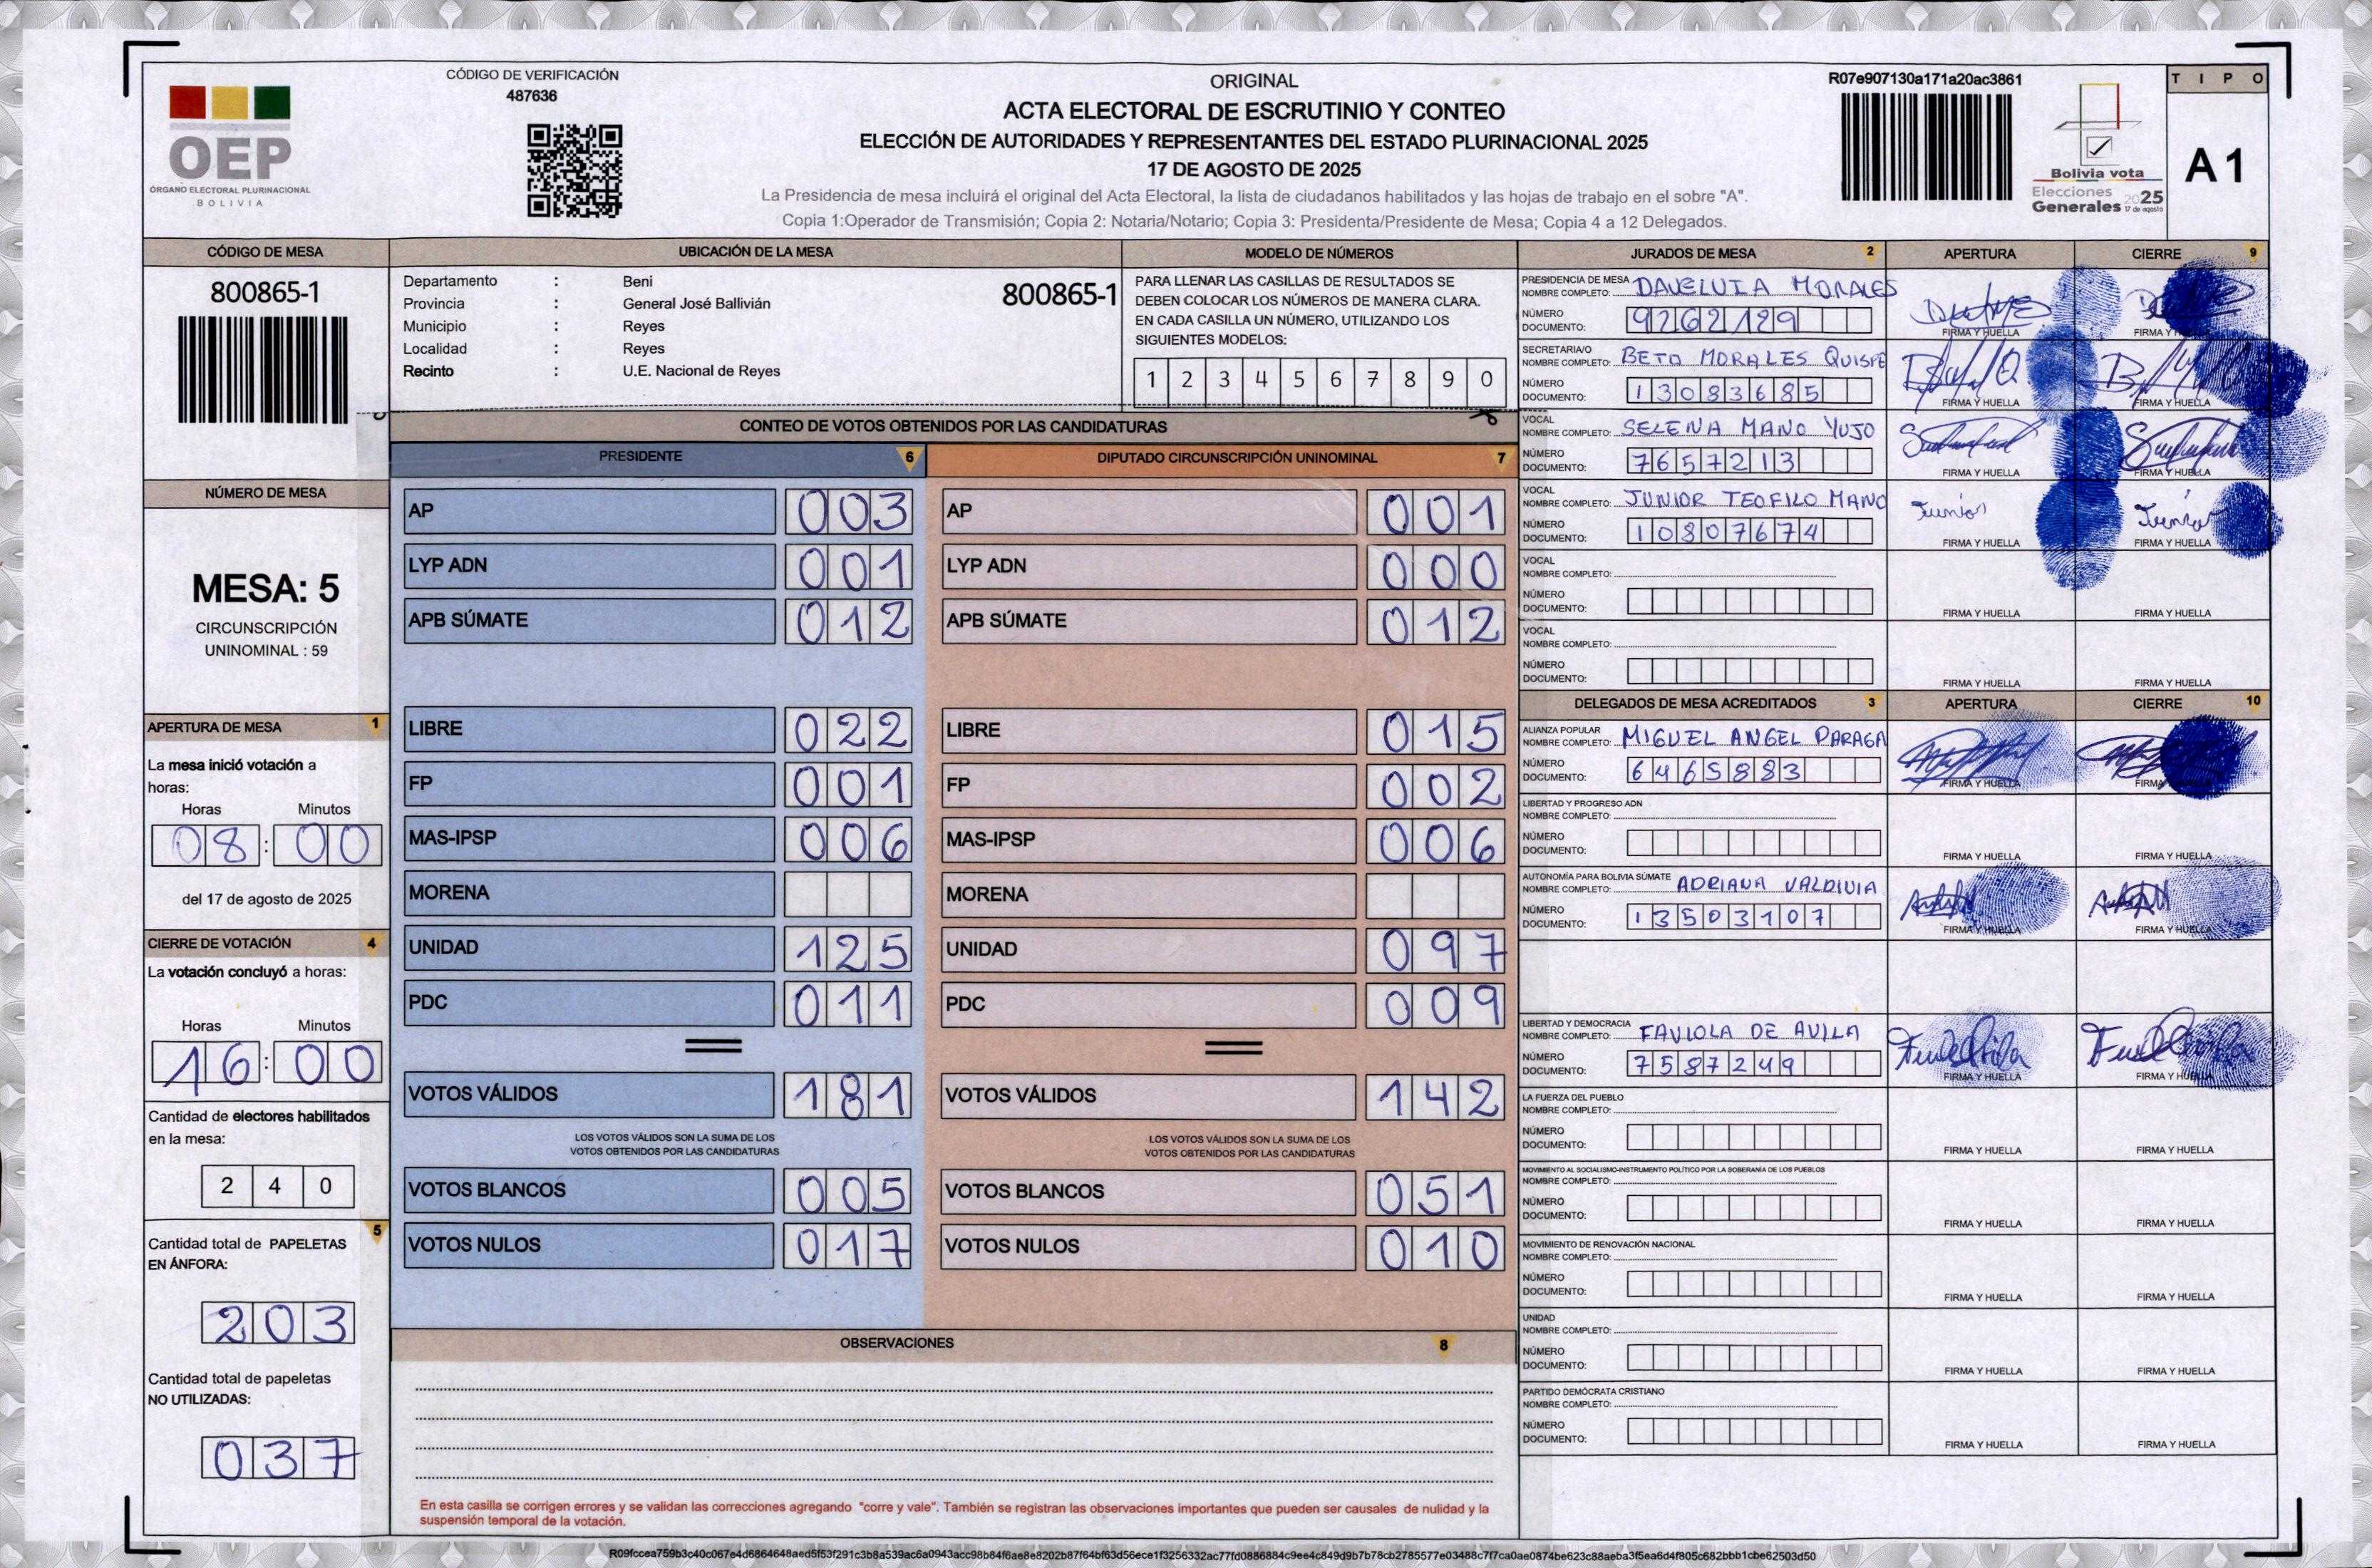 CÓDIGO DE VERIFICACIÓN
487636
OEP
ÓRGANO ELECTORAL PLURINACIONAL
BOLIVIA
ORIGINAL
ACTA ELECTORAL DE ESCRUTINIO Y CONTEO
ELECCIÓN DE AUTORIDADES Y REPRESENTANTES DEL ESTADO PLURINACIONAL 2025
17 DE AGOSTO DE 2025
La Presidencia de mesa incluirá el original del Acta Electoral, la lista de ciudadanos habilitados y las hojas de trabajo en el sobre "A".
Copia 1:Operador de Transmisión; Copia 2: Notaria/Notario; Copia 3: Presidenta/Presidente de Mesa; Copia 4 a 12 Delegados.
R07e907130a171a20ac3861
Bolivia vota
Elecciones 2025
Generales 17 de agosto
TIPO
A1
CÓDIGO DE MESA
800865-1
UBICACIÓN DE LA MESA
Departamento : Beni
Provincia : General José Ballivián
Municipio : Reyes
Localidad : Reyes
Recinto : U.E. Nacional de Reyes
800865-1
MODELO DE NÚMEROS
PARA LLENAR LAS CASILLAS DE RESULTADOS SE
DEBEN COLOCAR LOS NÚMEROS DE MANERA CLARA.
EN CADA CASILLA UN NÚMERO, UTILIZANDO LOS
SIGUIENTES MODELOS:
1 2 3 4 5 6 7 8 9 0
NÚMERO DE MESA
MESA: 5
CIRCUNSCRIPCIÓN
UNINOMINAL : 59
APERTURA DE MESA 1
La mesa inició votación a
horas:
Horas Minutos
08:00
del 17 de agosto de 2025
CIERRE DE VOTACIÓN 4
La votación concluyó a horas:
Horas Minutos
16:00
Cantidad de electores habilitados
en la mesa:
240
5
Cantidad total de PAPELETAS
EN ÁNFORA:
203
Cantidad total de papeletas
NO UTILIZADAS:
037
CONTEO DE VOTOS OBTENIDOS POR LAS CANDIDATURAS
PRESIDENTE 6
AP 003
LYP ADN 001
APB SÚMATE 012
LIBRE 022
FP 001
MAS-IPSP 006
MORENA
UNIDAD 125
PDC 011
VOTOS VÁLIDOS 181
LOS VOTOS VÁLIDOS SON LA SUMA DE LOS
VOTOS OBTENIDOS POR LAS CANDIDATURAS
VOTOS BLANCOS 005
VOTOS NULOS 017
DIPUTADO CIRCUNSCRIPCIÓN UNINOMINAL 7
AP 001
LYP ADN 000
APB SÚMATE 012
LIBRE 015
FP 002
MAS-IPSP 006
MORENA
UNIDAD 097
PDC 009
VOTOS VÁLIDOS 142
LOS VOTOS VÁLIDOS SON LA SUMA DE LOS
VOTOS OBTENIDOS POR LAS CANDIDATURAS
VOTOS BLANCOS 051
VOTOS NULOS 010
OBSERVACIONES 8
En esta casilla se corrigen errores y se validan las correcciones agregando "corre y vale". También se registran las observaciones importantes que pueden ser causales de nulidad y la
suspensión temporal de la votación.
JURADOS DE MESA 2 APERTURA CIERRE 9
PRESIDENCIA DE MESA
NOMBRE COMPLETO: DAVELUIA MORALES
NÚMERO
DOCUMENTO: 9262129
FIRMA Y HUELLA FIRMA Y
SECRETARIA/O
NOMBRE COMPLETO: BETO MORALES QUISPE
NÚMERO
DOCUMENTO: 13083685
FIRMA Y HUELLA FIRMA Y HUELLA
VOCAL
NOMBRE COMPLETO: SELENA MANO YUJO
NÚMERO
DOCUMENTO: 7657213
FIRMA Y HUELLA FIRMA Y HUELLA
VOCAL
NOMBRE COMPLETO: JUNIOR TEOFILO MANO
NÚMERO
DOCUMENTO: 10807674
Junior Junior
FIRMA Y HUELLA FIRMA Y HUELLA
VOCAL
NOMBRE COMPLETO:
NÚMERO
DOCUMENTO:
FIRMA Y HUELLA FIRMA Y HUELLA
VOCAL
NOMBRE COMPLETO:
NÚMERO
DOCUMENTO:
FIRMA Y HUELLA FIRMA Y HUELLA
DELEGADOS DE MESA ACREDITADOS 3 APERTURA CIERRE 10
ALIANZA POPULAR
NOMBRE COMPLETO: MIGUEL ANGEL PARAGA
NÚMERO
DOCUMENTO: 6465883
FIRMA Y HUELLA FIRMA
LIBERTAD Y PROGRESO ADN
NOMBRE COMPLETO:
NÚMERO
DOCUMENTO:
FIRMA Y HUELLA FIRMA Y HUELLA
AUTONOMÍA PARA BOLIVIA SÚMATE
NOMBRE COMPLETO: ADRIANA VALDIVIA
NÚMERO
DOCUMENTO: 13503107
FIRMA Y HUELLA FIRMA Y HUELLA
LIBERTAD Y DEMOCRACIA
NOMBRE COMPLETO: FAVIOLA DE AVILA
NÚMERO
DOCUMENTO: 7587249
FIRMA Y HUELLA FIRMA Y HUELLA
LA FUERZA DEL PUEBLO
NOMBRE COMPLETO:
NÚMERO
DOCUMENTO:
FIRMA Y HUELLA FIRMA Y HUELLA
MOVIMIENTO AL SOCIALISMO-INSTRUMENTO POLÍTICO POR LA SOBERANÍA DE LOS PUEBLOS
NOMBRE COMPLETO:
NÚMERO
DOCUMENTO:
FIRMA Y HUELLA FIRMA Y HUELLA
MOVIMIENTO DE RENOVACIÓN NACIONAL
NOMBRE COMPLETO:
NÚMERO
DOCUMENTO:
FIRMA Y HUELLA FIRMA Y HUELLA
UNIDAD
NOMBRE COMPLETO:
NÚMERO
DOCUMENTO:
FIRMA Y HUELLA FIRMA Y HUELLA
PARTIDO DEMÓCRATA CRISTIANO
NOMBRE COMPLETO:
NÚMERO
DOCUMENTO:
FIRMA Y HUELLA FIRMA Y HUELLA